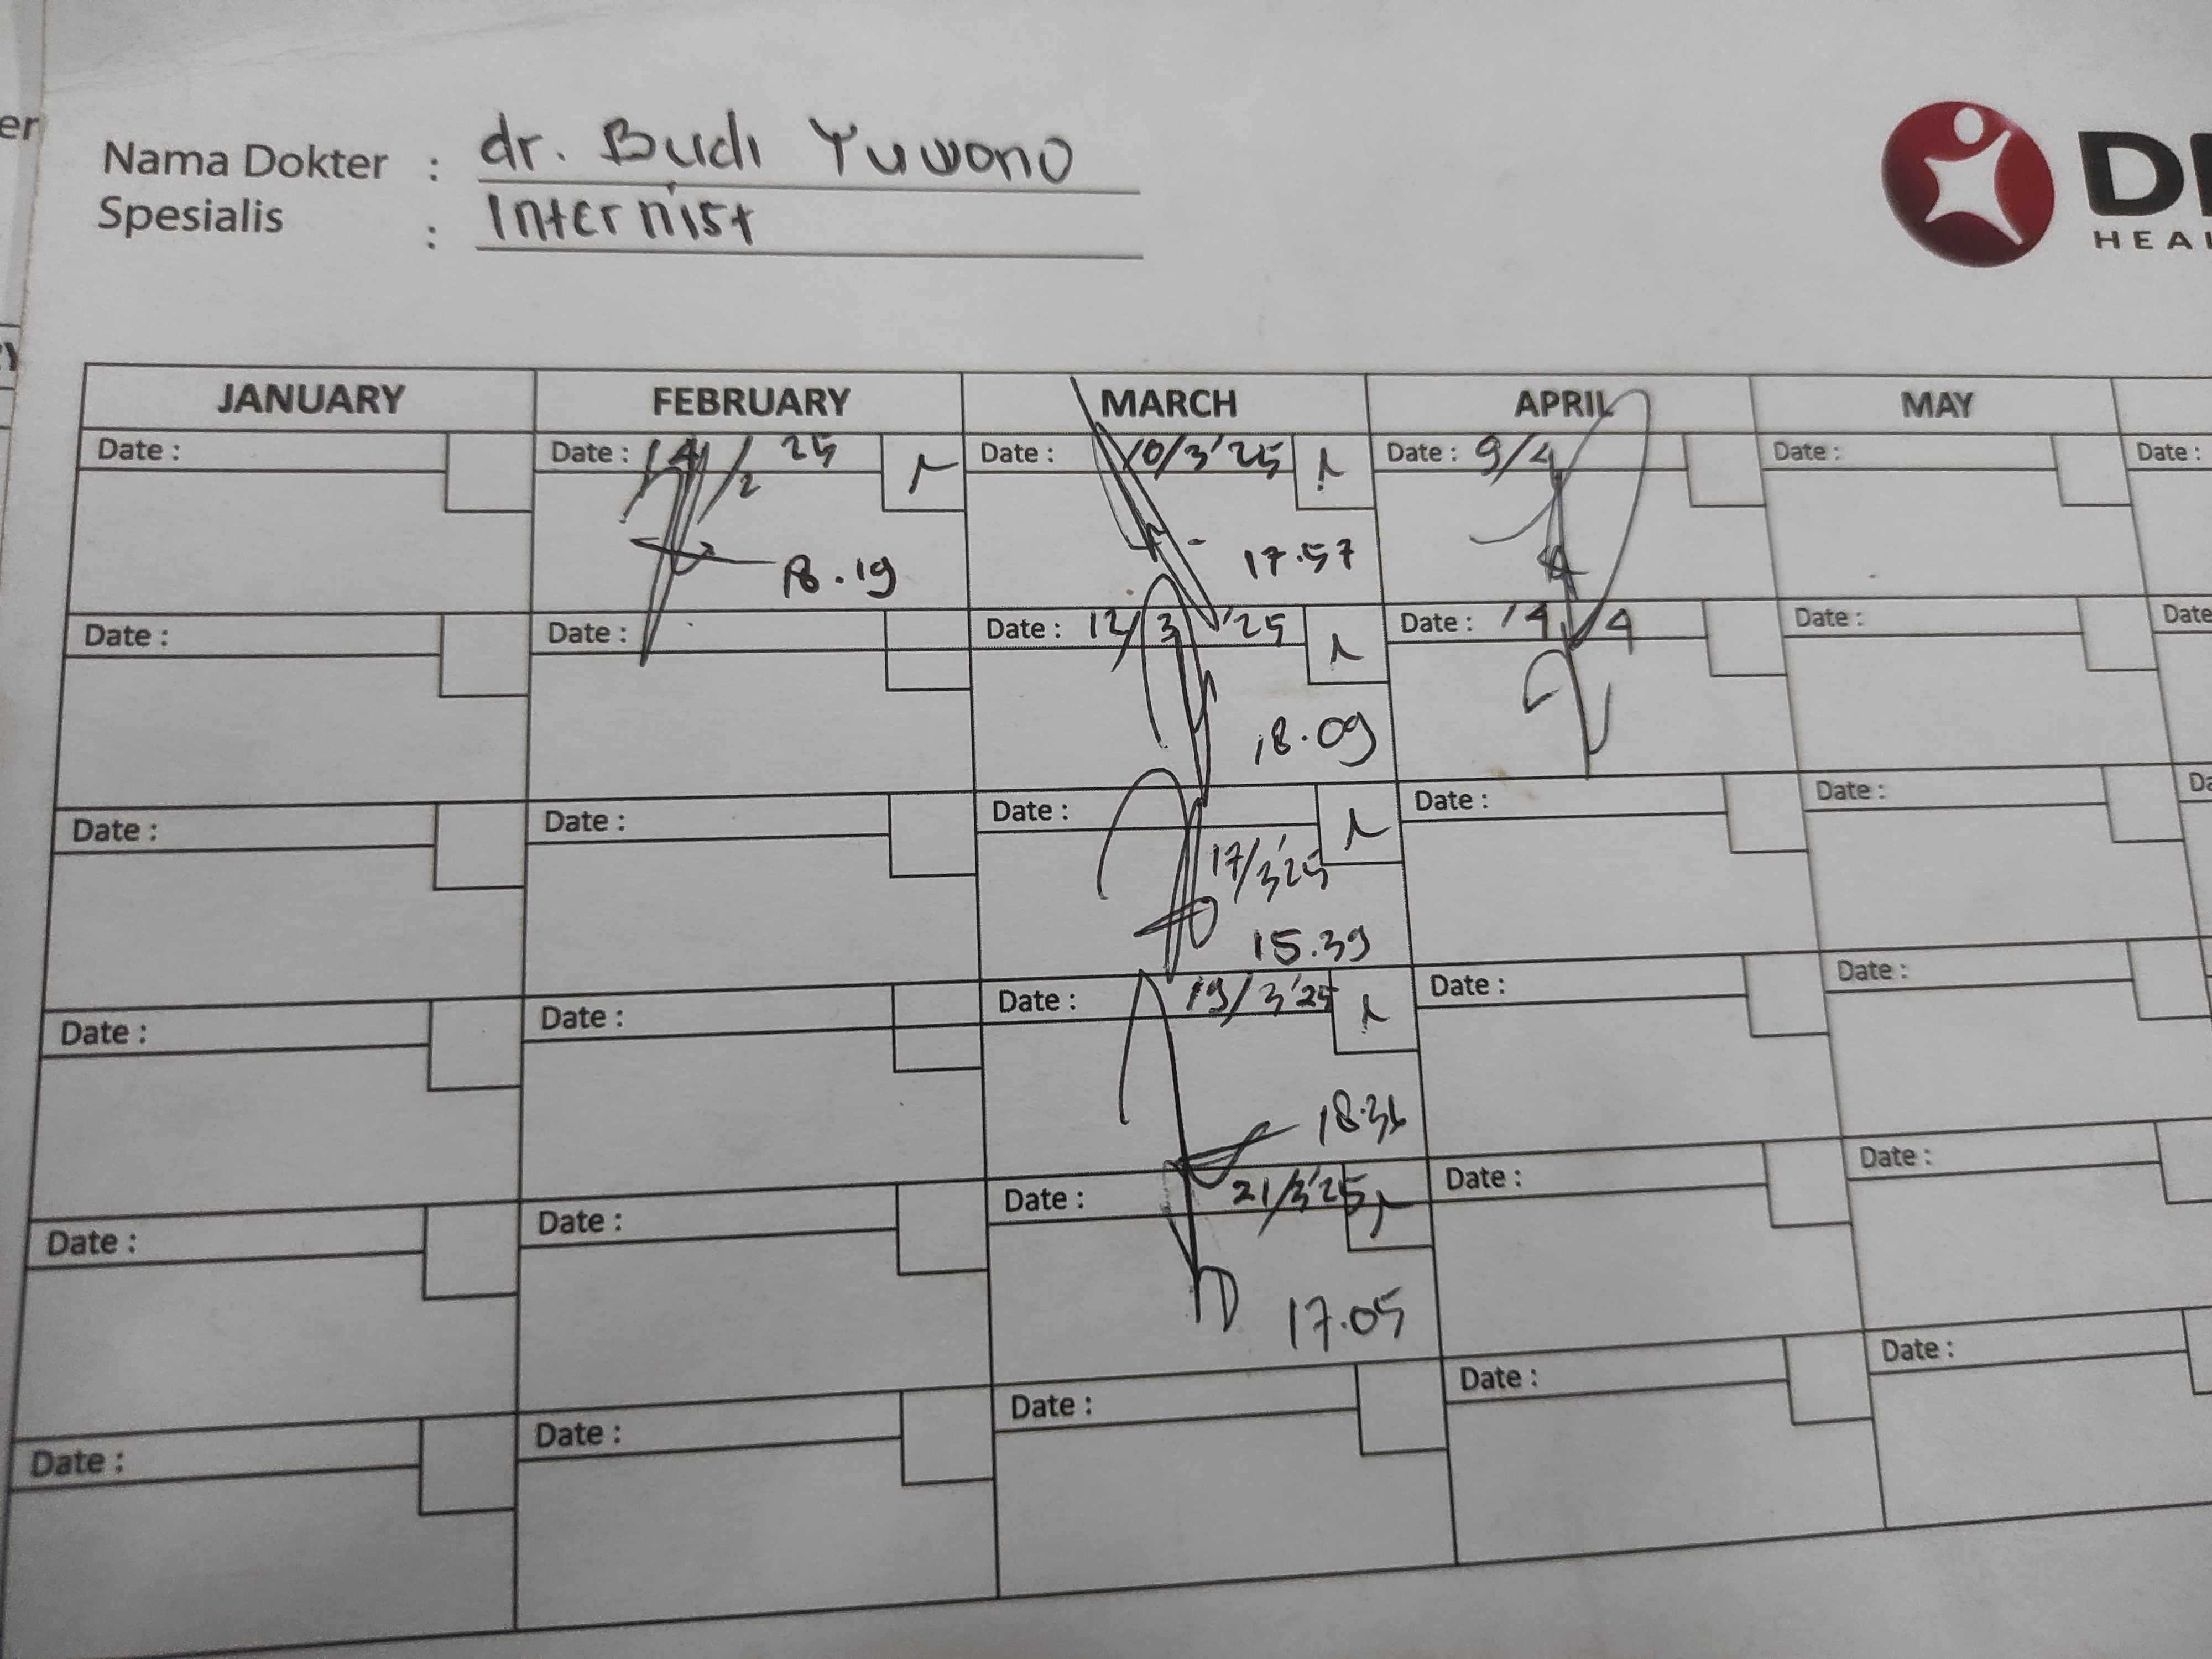 er
Nama Dokter : dr. Budi Yuwono
Spesialis : Internist
HEAL
JANUARY FEBRUARY MARCH APRIL MAY
Date : Date : 14/2 25 Date : 10/3'25 Date : 9/4 Date : Date :
18.19 17.57
Date : Date : Date : 12/3 '25 Date : 14/4 Date : Date
18.09
Date : Date : Date : Date : Date : Da
17/3'25
15.39
Date : Date : Date : 19/3'25 Date : Date :
18.36
Date : Date : Date : 21/3'25 Date : Date :
17.05
Date : Date : Date : Date : Date :